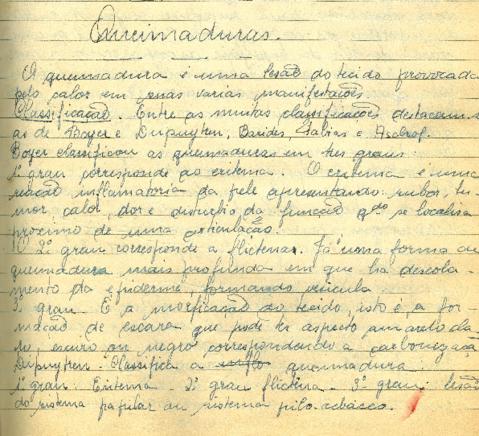 Queimaduras.
A queimadura é uma lesão do tecido provocada
pelo calor em suas varias manifestações.
Classificação. Entre as muitas classificações destacam-se
as de Boyer e Dupuytren,
Boyer classificou as queimaduras em tres graus:
1º grau corresponde ao eritema. O eritema é uma
reação inflamatoria da pele apresentando: rubor, tu-
mor, calor, dor e disfunção da função qdo se localisa
proximo de uma articulação.
O 2º grau corresponde a flictenas. Já é uma forma de
queimadura mais profunda em que ha descola-
mento da epiderme, formando vesicula.
3º grau. É a mortificação do tecido, isto é, a for-
mação de escara que pode ter aspecto amarelada
escuro ou negro correspondendo a carbonização
Dupuytren. Classifica a queimadura
1º grau: Eritema. 2º grau flictena. 3º grau: lesão
do sistema papilar ou sistema pilo-sebáceo.